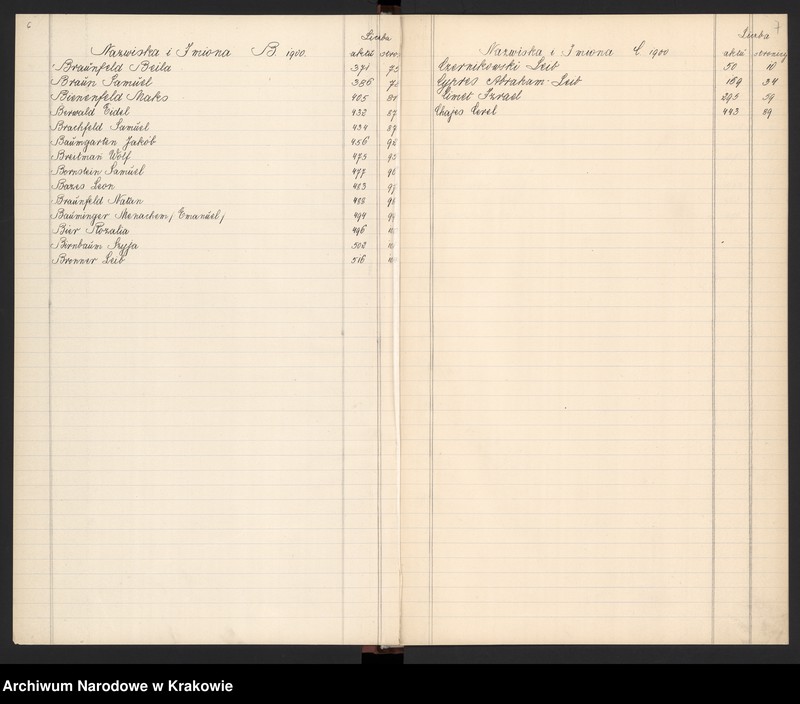 6
Liczba
Nazwiska i Imiona B. 1900. aktu
Braünfeld Beila 371 75
Braün Samüel 386
Bienenfeld Maks 405 81
Berwald Eidel 432 87
Brachfeld Samüel 434 87
Baümgarten Jakób 456 92
Breitman Wolf 475 95
Bornstein Samüel 477 96
Bazes Leon 483 97
Braünfeld Natan 488 98
Baüminger Menachem / Emanüel / 494 99
Bier Rozalia 496
Birnbaüm Szyja 502
Bronner Leib 516
7
Liczba
Nazwiska i Imiona C. 1900 aktu stronicy
Czernikowski Leib 50 10
Cypres Abraham-Leib 169 34
Cimet Izrael 295 59
Chajes Cerel 443 89
Archiwum Narodowe w Krakowie